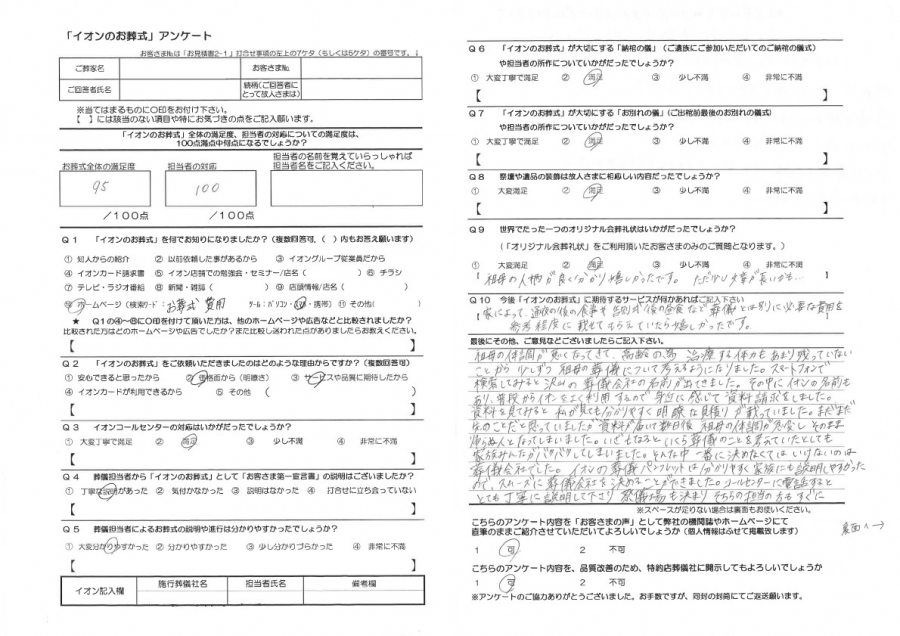 「イオンのお葬式」アンケート
お客さま№は「お見積書2-1」打合せ事項の左上の7ケタ（もしくは5ケタ）の番号です。↓
ご葬家名 お客さま№
ご回答者氏名 続柄（ご回答者にとって故人さまは）
※当てはまるものに○印をお付け下さい。
【　】には該当のない項目や特にお気づきの点をご記入願います。
「イオンのお葬式」全体の満足度、担当者の対応についての満足度は、
100点満点中何点になるでしょうか？
お葬式全体の満足度 担当者の対応 担当者の名前を覚えていらっしゃれば
担当者名をご記入ください。
95 100
/100点 /100点
Q1 「イオンのお葬式」を何でお知りになりましたか？（複数回答可、（　）内もお答え願います）
① 知人からの紹介 ② 以前依頼した事があるから ③ イオングループ従業員だから
④ イオンカード請求書 ⑤ イオン店舗での勉強会・セミナー/店名（　） ⑥ チラシ
⑦ テレビ・ラジオ番組 ⑧ 新聞・雑誌（　） ⑨ 店頭情報/店名（　）
⑩ ホームページ（検索ワード： お葬式 費用 ツール：パソコン・ ・携帯） ⑪ その他（　）
★ Q1の④～⑧に○印を付けて頂いた方は、他のホームページや広告などと比較されましたか？
比較された方はどのホームページや広告でしたか？また比較し迷われた点がありましたらお教えください。
【　】
Q2 「イオンのお葬式」をご依頼いただきましたのはどのような理由からですか？（複数回答可）
① 安心できると思ったから ② 価格面から（明瞭さ） ③ サービスや品質に期待したから
④ イオンカードが利用できるから ⑤ その他（　）
【　】
Q3 イオンコールセンターの対応はいかがだったでしょうか？
① 大変丁寧で満足 ② 満足 ③ 少し不満 ④ 非常に不満
【　】
Q4 葬儀担当者から「イオンのお葬式」として「お客さま第一宣言書」の説明はございましたか？
① 丁寧な説明があった ② 気付かなかった ③ 説明はなかった ④ 打合せに立ち会っていない
【　】
Q5 葬儀担当者によるお葬式の説明や進行は分かりやすかったでしょうか？
① 大変分かりやすかった ② 分かりやすかった ③ 少し分かりづらかった ④ 非常に不満
【　】
イオン記入欄 施行葬儀社名 担当者氏名 備考欄
Q6 「イオンのお葬式」が大切にする「納棺の儀」（ご遺族にご参加いただいてのご納棺の儀式）
や担当者の所作についていかがだったでしょうか？
① 大変丁寧で満足 ② 満足 ③ 少し不満 ④ 非常に不満
【　】
Q7 「イオンのお葬式」が大切にする「お別れの儀」（ご出棺前最後のお別れの儀式）
や担当者の所作についていかがだったでしょうか？
① 大変丁寧で満足 ② 満足 ③ 少し不満 ④ 非常に不満
【　】
Q8 祭壇や遺品の装飾は故人さまに相応しい内容だったでしょうか？
① 大変満足 ② 満足 ③ 少し不満 ④ 非常に不満
【　】
Q9 世界でたった一つのオリジナル会葬礼状はいかがだったでしょうか？
（「オリジナル会葬礼状」をご利用頂いたお客さまのみのご質問となります。）
① 大変満足 ② 満足 ③ 少し不満 ④ 非常に不満
【祖母の人柄が良く分かり嬉しかったです。ただ少し文章が長いかも…】
Q10 今後「イオンのお葬式」に期待するサービスが何かあればご記入下さい
【家によって、通夜の後の食事や告別式後の会食など葬儀とは別に必要な費用を
参考程度に載せてもらえていたら嬉しかったです。】
最後にその他、ご意見などございましたらご記入下さい。
祖母の体調が悪くなってきて、高齢の為 治療する体力もあまり残っていない
ことから 少しずつ祖母の葬儀について考えるようになりました。スマートフォンで
検索してみると沢山の葬儀会社の名前が出てきました。その中にイオンの名前も
あり、普段からイオンをよく利用するので身近に感じて資料請求をしました。
資料を見てみると私が見ても分かりやすく明瞭な見積りが載っていました。まだまだ
先のことだと思っていましたが資料が届いて数日後、祖母の体調が急変し そのまま
帰らぬ人となってしまいました。いざとなるといくら葬儀のことを考えていたとしても
家族みんながバタバタしてしまいました。そんな中 一番に決めなくてはいけないのは
葬儀会社でした。イオンの葬儀パンフレットは分かりやすく家族にも説明しやすかった
ので、スムーズに葬儀会社を決めることができました。コールセンターに電話すると
とても丁寧に説明して下さり 葬儀場も決まり そちらの担当の方もすぐに
※スペースが足りない場合は裏面もお使いください。
裏面へ→
こちらのアンケート内容を「お客さまの声」として弊社の機関誌やホームページにて
直筆のままご紹介させていただいてよろしいでしょうか（個人情報はふせて掲載致します）
1 可 2 不可
こちらのアンケート内容を、品質改善のため、特約店葬儀社に開示してもよろしいでしょうか
1 可 2 不可
※アンケートのご協力ありがとうございました。お手数ですが、同封の封筒にてご返送願います。